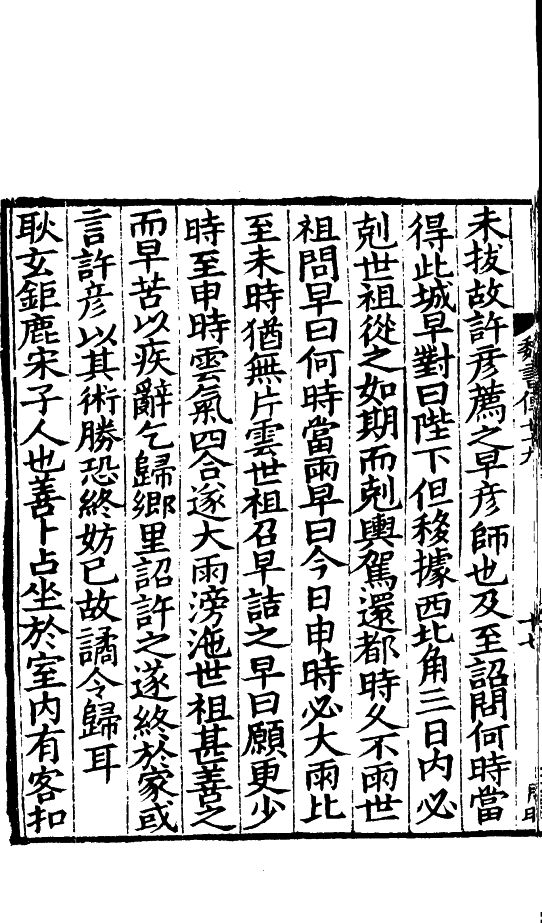 魏書傳七十九
十七
未拔故許彦薦之早彦師也及至詔問何時當
得此城早對曰陛下但移據西北角三日內必
剋世祖從之如期而剋輿駕還都時久不雨世
祖問早曰何時當雨早曰今日申時必大雨比
至未時猶無片雲世祖召早詰之早曰願更少
時至申時雲氣四合遂大雨滂沲世祖甚善之
而早苦以疾辭乞歸鄉里詔許之遂終於家或
言許彦以其術勝恐終妨已故譎令歸耳
耿玄鉅鹿宋子人也善卜占坐於室內有客扣